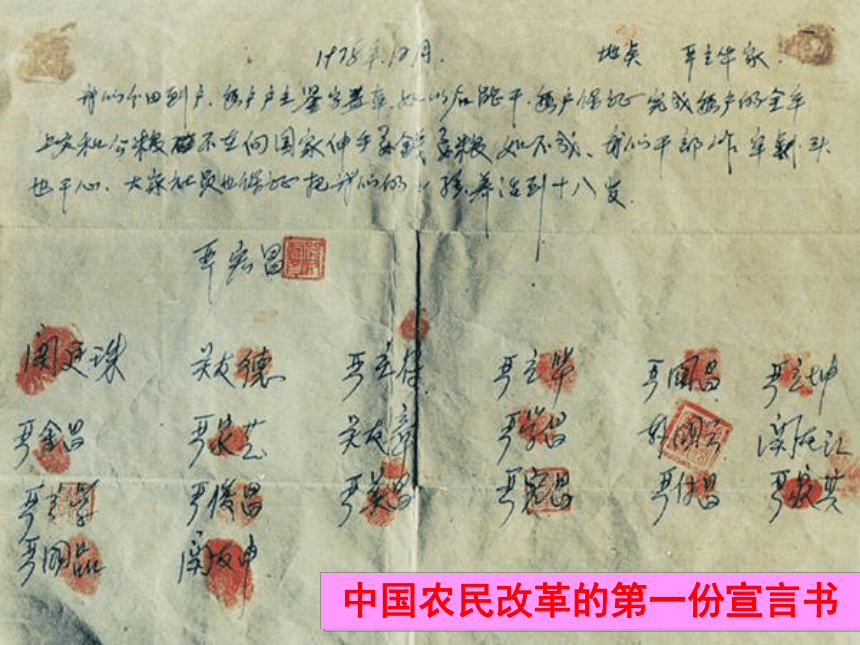 1978年12月. 地点 严立华家.
我们分田到户.每户户主签字盖章.如以后能干.每户保证完成每户的全年
上交和公粮不在向国家伸手要錢要粮 如不成、我们干部作牢刹头
也干心. 大家社员也保证把我们的小孩.养活到十八岁.
严宏昌
关廷珠 关友德 严立符 严立华 严国昌 严立坤
严金昌 严家芝 关友章 严学昌 韩国云 关友江
严立学 严俊昌 严美昌 严宏昌 严付昌 严家其
严国品 关友申
中国农民改革的第一份宣言书